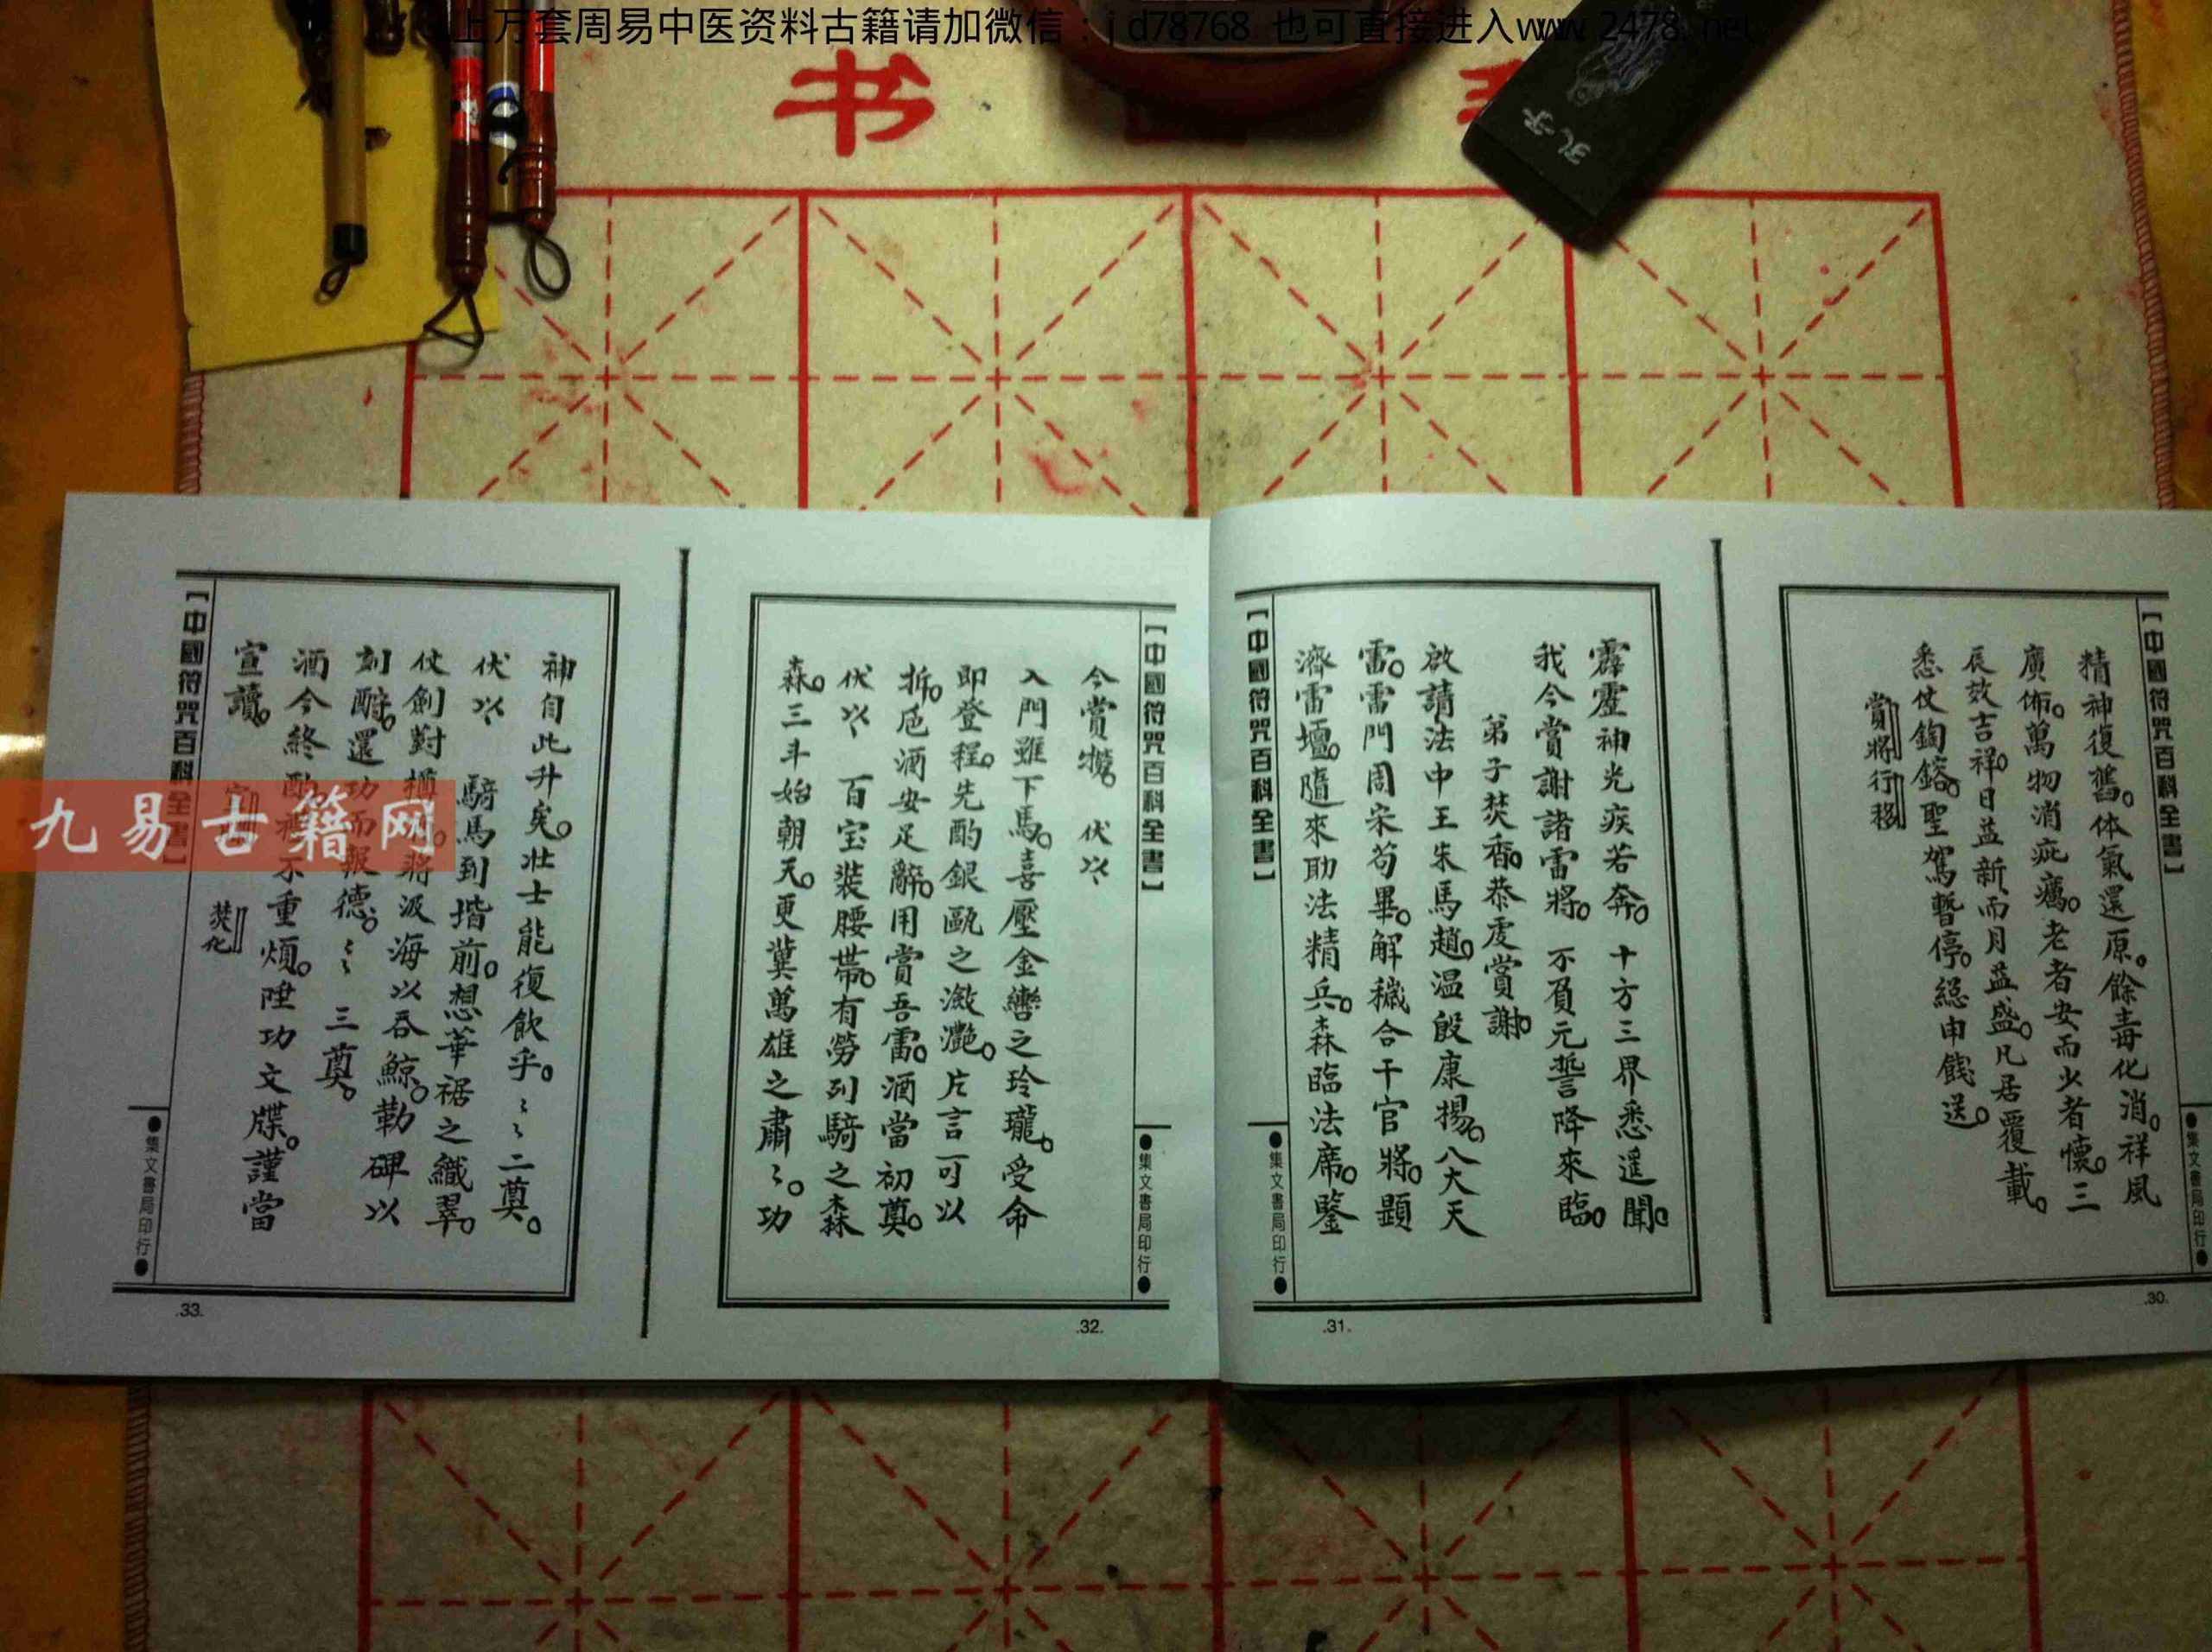 上万套周易中医资料古籍请加微信：jd78768 也可直接进入www.2478.net
书
孔子
【中國符咒百科全書】
精神復舊。体氣還原。餘毒化消。祥風
廣佈。萬物消疵癘。老者安而少者懷。三
辰效吉祥。日益新而月益盛。凡居覆載。
悉仗鈞鎔。聖駕暫停。總申餞送。
賞將行移
●集文書局印行●
.30.
霹靂神光疾若奔。十方三界悉遥聞。
我今賞謝諸雷將。不負元誓降來臨。
弟子焚香。恭虔賞謝。
啟請法中王朱馬趙。温殷康楊。八大天
雷。雷門周宋苟畢。解穢合干官將。顯
濟雷壇。隨來助法精兵。森臨法席。鑒
【中國符咒百科全書】
●集文書局印行●
.31.
【中國符咒百科全書】
今賞犒。伏以
入門雖下馬。喜壓金轡之玲瓏。受命
即登程。先酌銀甌之瀲灧。片言可以
折。卮酒安足辭。用賞吾雷。酒當初奠。
伏以 百宝裝腰帶。有勞列騎之森
森。三斗始朝天。更冀萬雄之肅〻。功
●集文書局印行●
.32.
神自此升矣。壯士能復飲乎。〻〻二奠。
伏以 騎馬到堦前。想華裾之織翠。
仗劍對樽。將汲海以吞鯨。勒碑以
刻醻。還功而報德。〻〻三奠。
酒今終 不重煩。陞功文牒。謹當
宣讀。
焚化
【中國符咒百科全書】
●集文書局印行●
.33.
九易古籍网